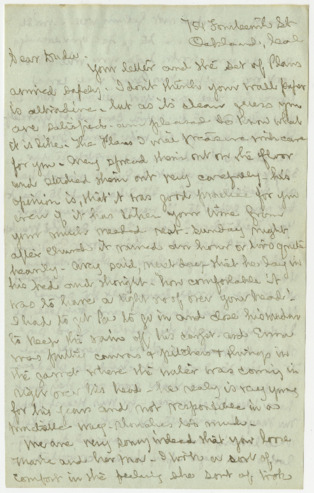 751 Fourteenth St
Oakland, Cal
Dear Duke.
Your letter and the set of Plans
arrived safely. I don't think your wall paper
is attractive - but as its clean guess you
are satisfied - am pleased to know what
it is like. The Plans I will treasure with care
for you - Avey spread them out on the floor
and studied them out very carefully. his
opinion is, that it was good practice for you
even if it has taken your time from
your much needed rest. Sunday night
after church it rained an hour or two quite
heavily - Avey said, next day, that he lay in
his bed and thought "how comfortable it
was to have a tight roof over your head" -
I had to get up to go in and close his window
to keep the rain off his carpet and Emma
was putting canvas & pitchers & things in
the garret where the water was coming in
right over his head - he really is very young
for his years and not responsible in a
practical way - Otherwise he's much -
We are very sorry indeed that you lose
Marie and her man - I took a sort of
comfort in the feeling she sort of took